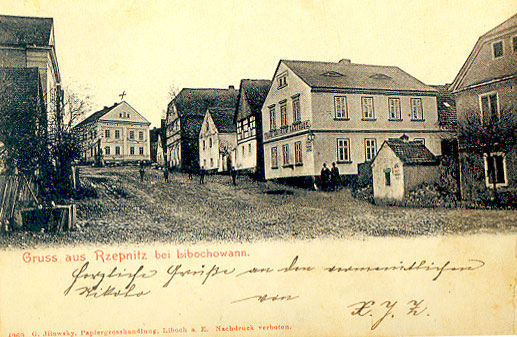 Gruss aus Rzepnitz bei Libochowann.
Herzliche Grüße an den vermeintlichen
Nikolo
von
X.Y.Z.
1903 G. Jilowsky, Papiergrosshandlung, Liboch a. E. Nachdruck verboten.